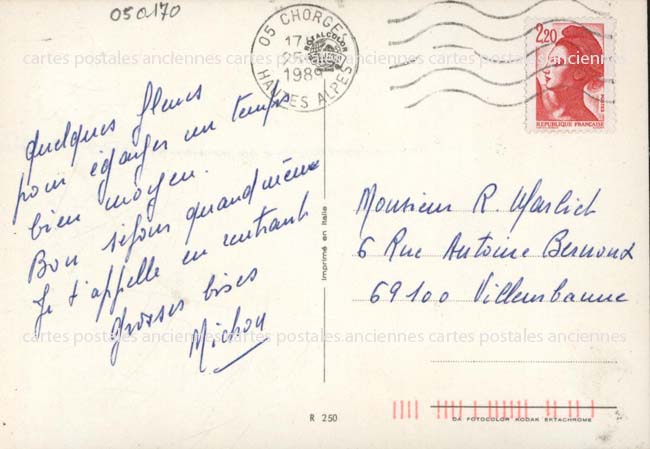 050170
05 CHORGES
17H
25
1989
HAUTES ALPES
2,20
REPUBLIQUE FRANÇAISE
cartes postales anciennes cartes postales anciennes cartes postales anciennes
Quelques fleurs
pour égayer un temps
bien moyen.
Bon séjour quand même
Je t'appelle en rentrant
grosses bises
Michou
Imprimé en Italie
Monsieur R. Warlich
6 Rue Antoine Bernoux
69100 Villeurbanne
cartes postales anciennes cartes postales anciennes cartes postales anciennes
R 250
DA FOTOCOLOR KODAK EKTACHROME